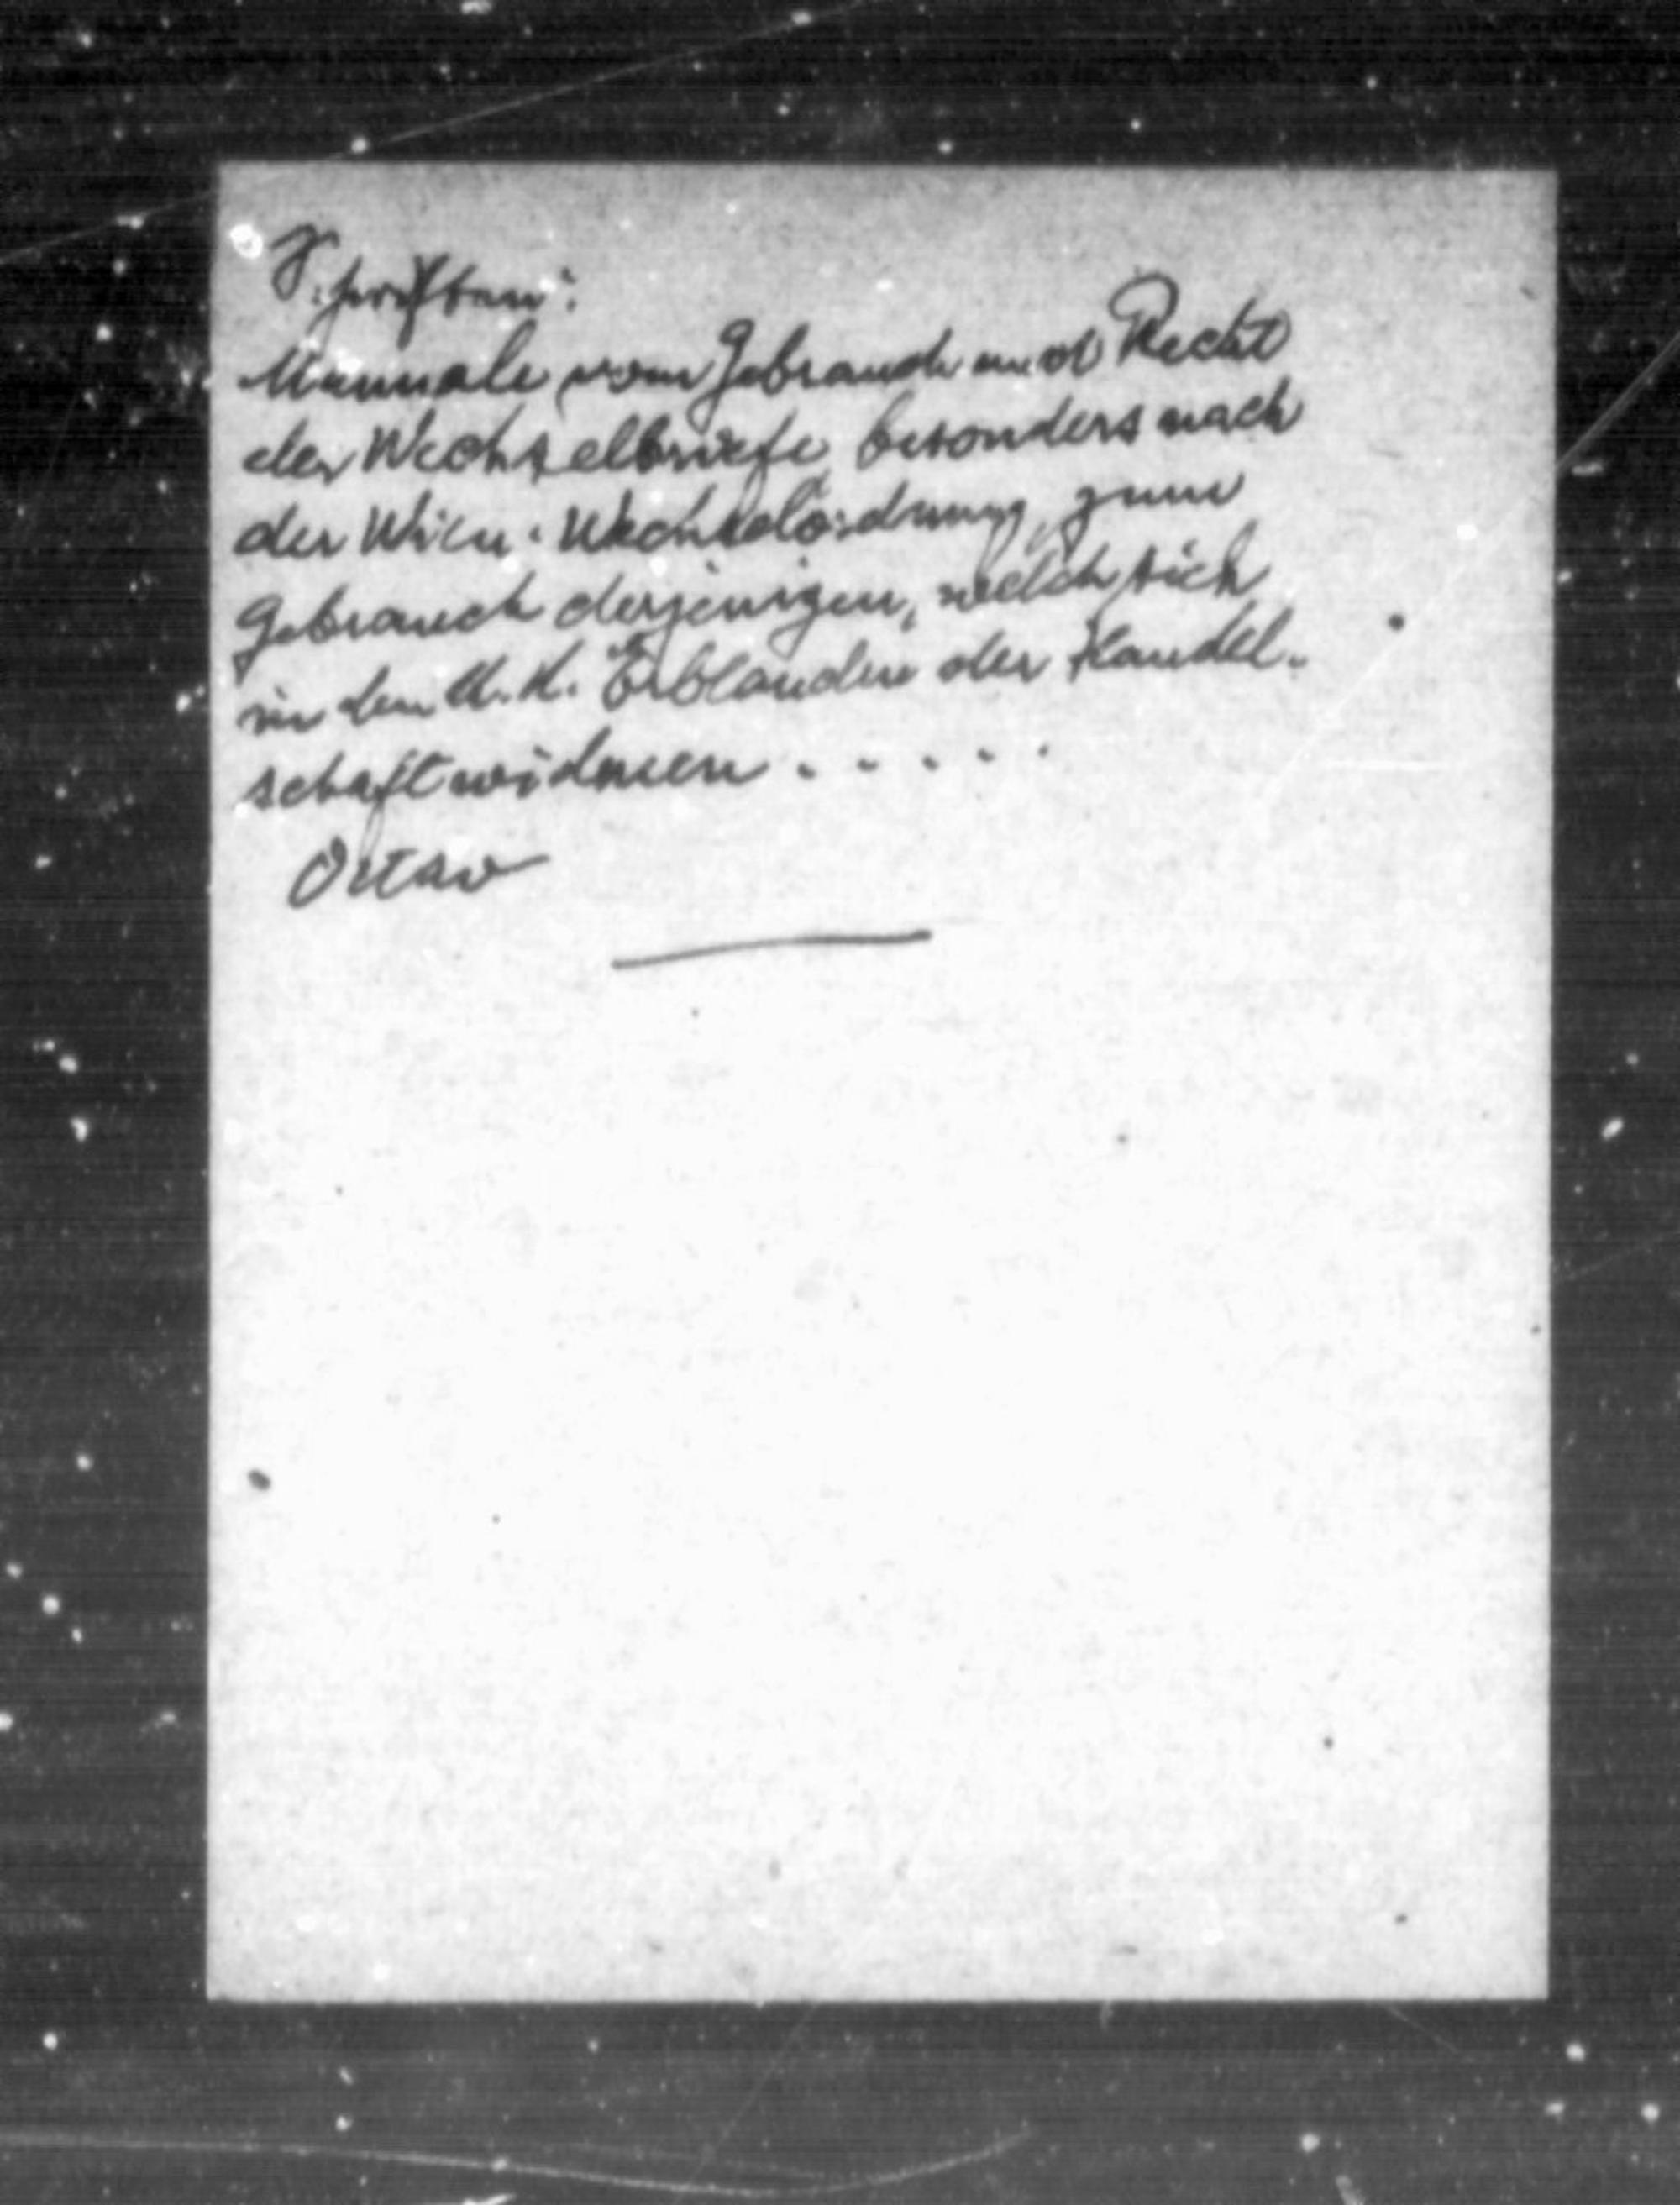 Schriften:
Manuale vom Gebrauch und Recht
der Wechselbriefe besonders nach
der Wien. Wechselordnung zum
Gebrauch derjenigen, welch sich
in den K. K. Erblanden der Handel-
schaft widmen . . . . .
Octav